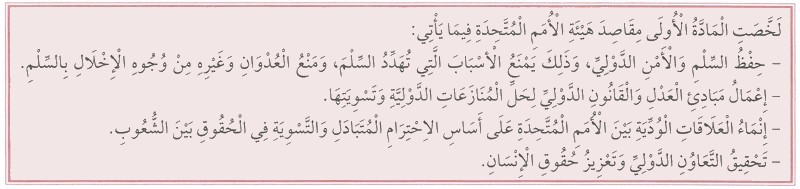 لَخَّصَتِ الْمَادَّةُ الْأُولَى مِقَاصِدَ هَيْئَةِ الْأُمَمِ الْمُتَّحِدَةِ فِيمَا يَأْتِي:
- حِفْظُ السِّلْمِ وَالْأَمْنِ الدَّوْلِيِّ، وَذَلِكَ يَمْنَعُ الْأَسْبَابَ الَّتِي تُهَدِّدُ السِّلْمَ، وَمَنْعُ الْعُدْوَانِ وَغَيْرِهِ مِنْ وُجُوهِ الْإِخْلَالِ بِالسِّلْمِ.
- إِعْمَالُ مَبَادِئِ الْعَدْلِ وَالْقَانُونِ الدَّوْلِيِّ لِحَلِّ الْمُنَازَعَاتِ الدَّوْلِيَّةِ وَتَسْوِيَتِهَا.
- إِنْمَاءُ الْعَلَاقَاتِ الْوُدِّيَةِ بَيْنَ الْأُمَمِ الْمُتَّحِدَةِ عَلَى أَسَاسِ الِاحْتِرَامِ الْمُتَبَادَلِ وَالتَّسْوِيَةِ فِي الْحُقُوقِ بَيْنَ الشُّعُوبِ.
- تَحْقِيقُ التَّعَاوُنِ الدَّوْلِيِّ وَتَعْزِيزُ حُقُوقِ الْإِنْسَانِ.